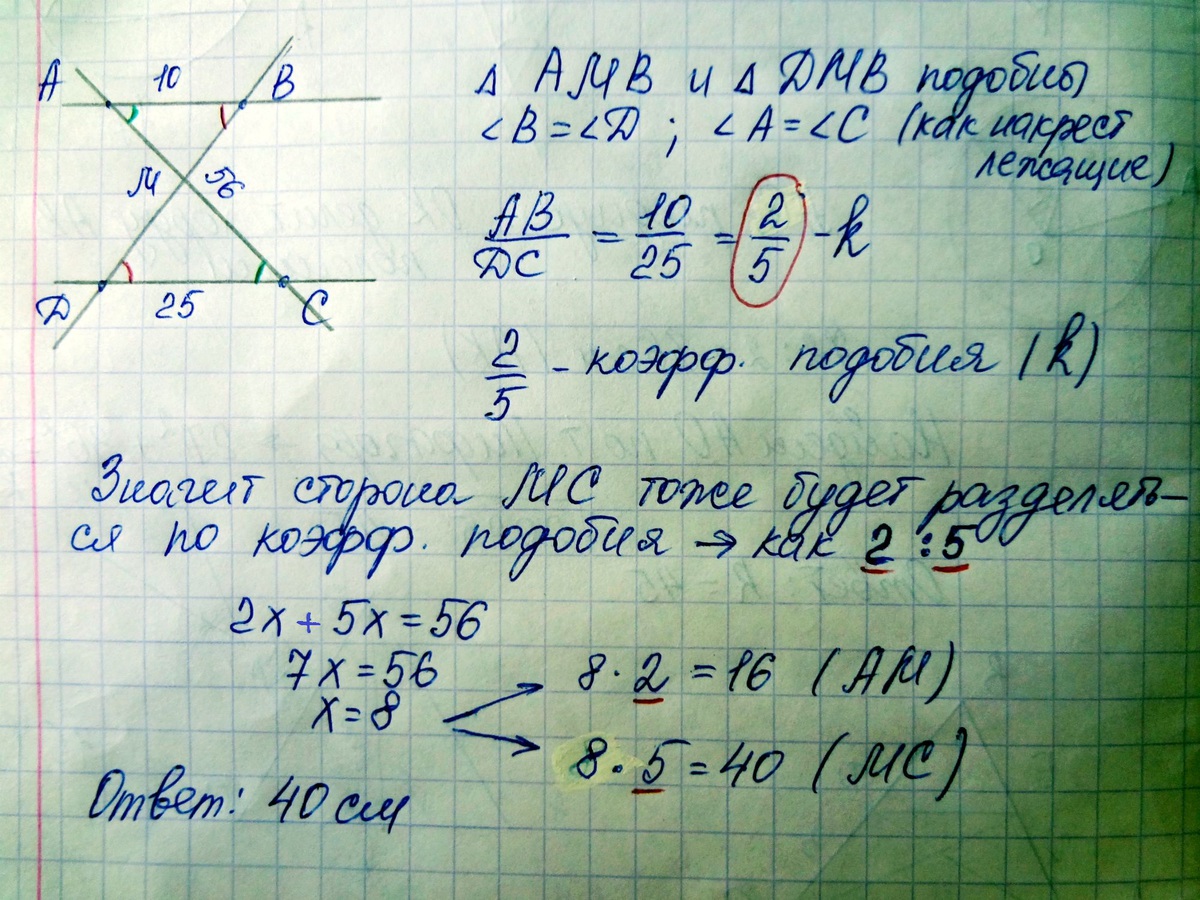 A 10 B
М 56
D 25 C
Δ АМВ и Δ DМВ подобны
∠B = ∠D ; ∠A = ∠C (как накрест
лежащие)
AB/DC = 10/25 = 2/5 - k
2/5 - коэфф. подобия (k)
Значит сторона МС тоже будет разделять-
ся по коэфф. подобия → как 2 : 5
2x + 5x = 56
7x = 56
x = 8
8 · 2 = 16 (АМ)
8 · 5 = 40 (МС)
Ответ: 40 см